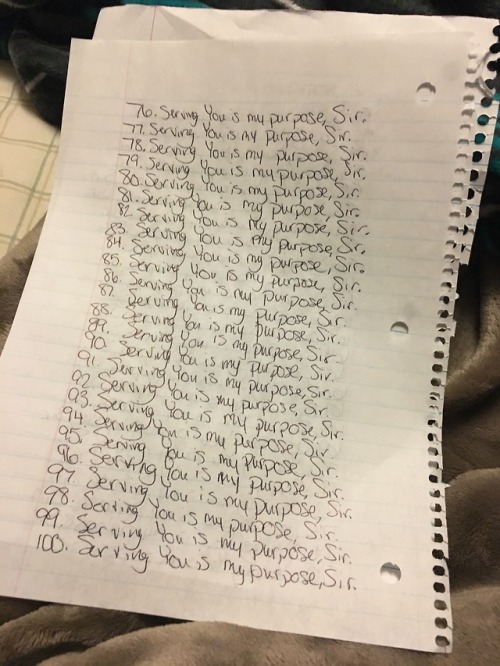 76. Serving You is my purpose, Sir.
77. Serving You is my purpose, Sir.
78. Serving You is my purpose, Sir.
79. Serving You is my purpose, Sir.
80. Serving You is my purpose, Sir.
81. Serving You is my purpose, Sir.
82. Serving You is my purpose, Sir.
83. Serving You is my purpose, Sir.
84. Serving You is my purpose, Sir.
85. Serving You is my purpose, Sir.
86. Serving You is my purpose, Sir.
87. Serving You is my purpose, Sir.
88. Serving You is my purpose, Sir.
89. Serving You is my purpose, Sir.
90. Serving You is my purpose, Sir.
91. Serving You is my purpose, Sir.
92. Serving You is my purpose, Sir.
93. Serving You is my purpose, Sir.
94. Serving You is my purpose, Sir.
95. Serving You is my purpose, Sir.
96. Serving You is my purpose, Sir.
97. Serving You is my purpose, Sir.
98. Serving You is my purpose, Sir.
99. Serving You is my purpose, Sir.
100. Serving You is my purpose, Sir.